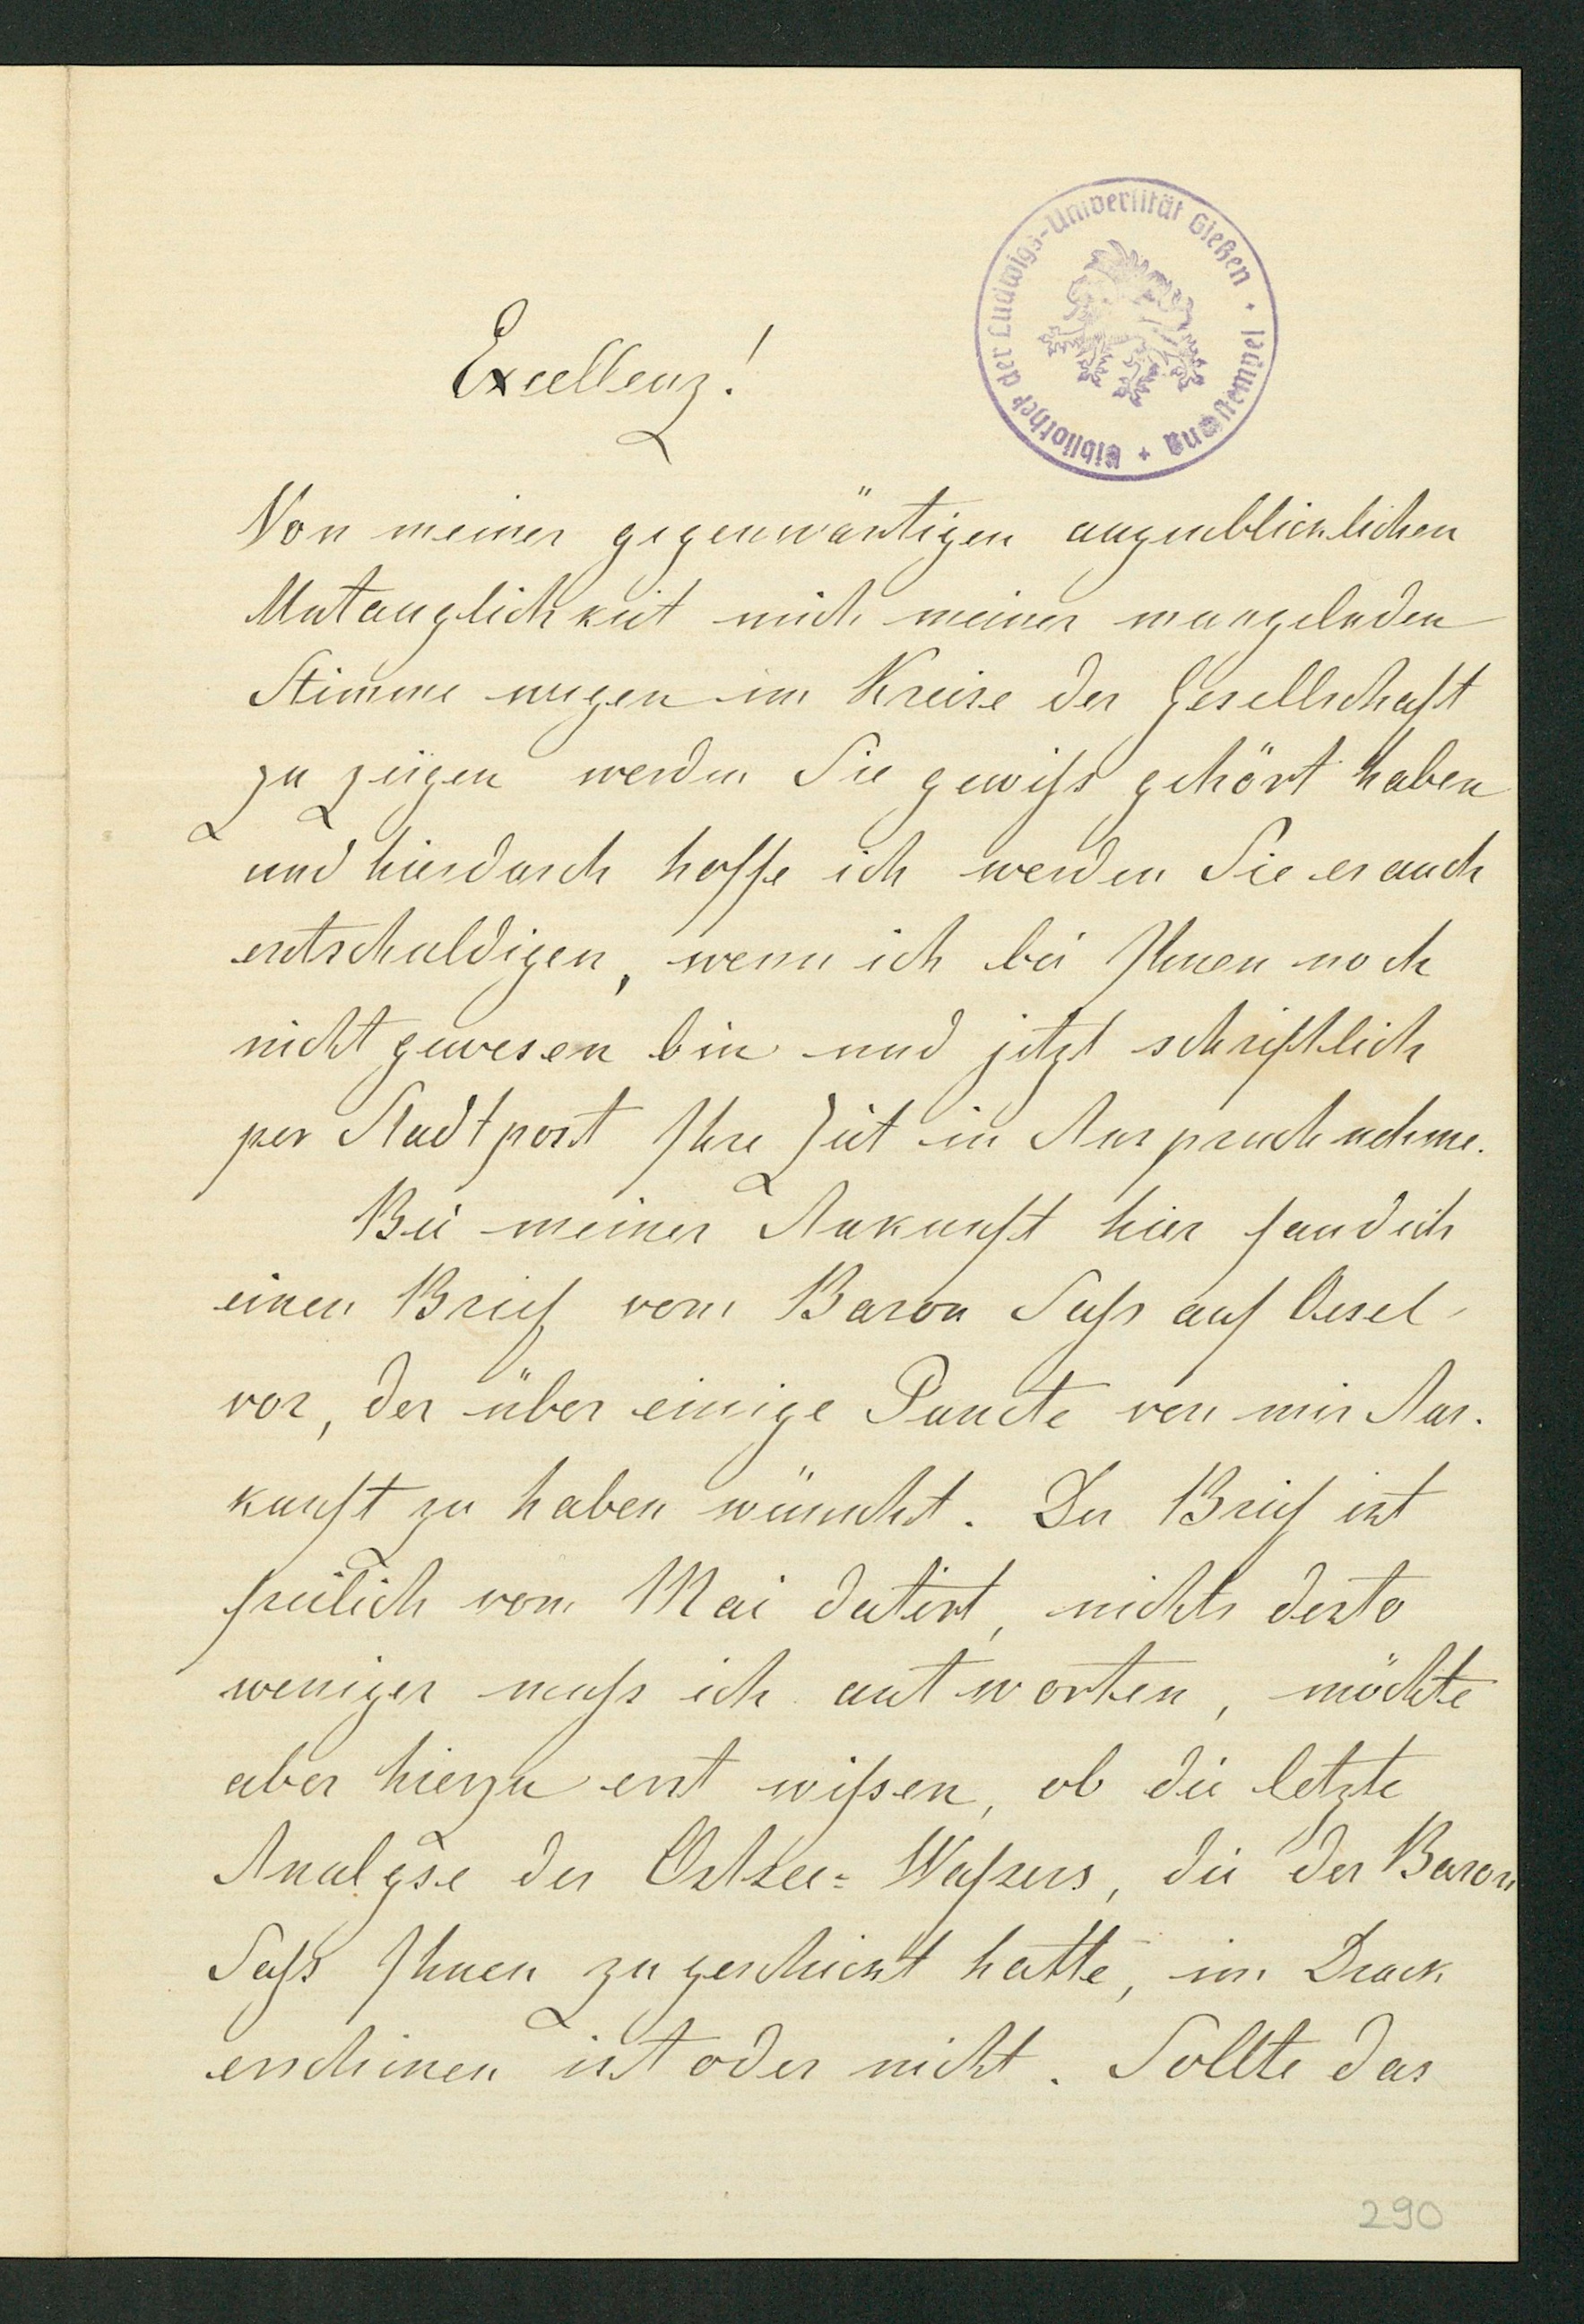 Bibliothek der Ludwigs-Universität Gießen + Handstempel +
Excellenz!
Von meiner gegenwärtigen augenblicklichen
Untauglichkeit mich meiner mangelnden
Stimme wegen im Kreise der Gesellschaft
zu zeigen werden Sie gewiſs gehört haben
und hierdurch hoffe ich werden Sie es auch
entschuldigen, wenn ich bei Ihnen noch
nicht gewesen bin und jetzt schriftlich
per Stadtpost Ihre Zeit in Anspruch nehme.
Bei meiner Ankunft hier fand ich
einen Brief vom Baron Saſs auf Oesel
vor, der über einige Puncte von mir Aus-
kunft zu haben wünscht. Der Brief ist
freilich vom Mai datirt, nichts desto
weniger muſs ich antworten, möchte
aber hierzu erst wiſsen, ob die letzte
Analyse des Ostsee-Waſsers, die der Baron
Saſs Ihnen zugeschickt hatte, im Druck
erschienen ist oder nicht. Sollte das
290